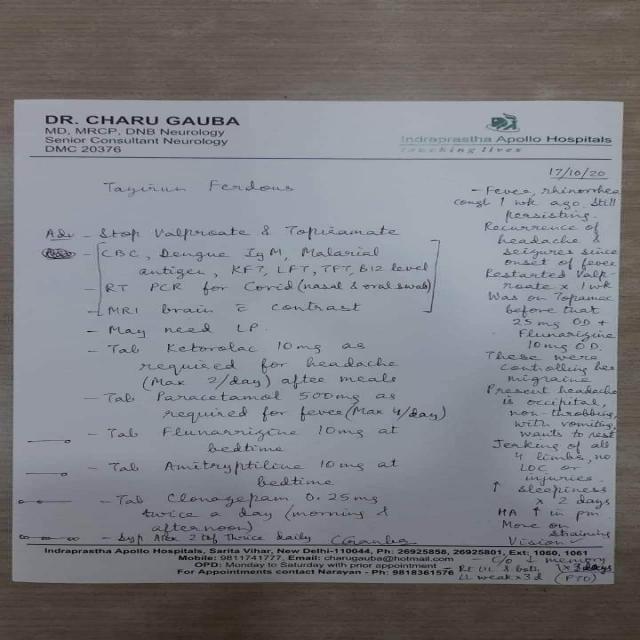 DR. CHARU GAUBA
MD, MRCP, DNB Neurology
Senior Consultant Neurology
DMC 20376
Indraprastha Apollo Hospitals
touching lives
17/10/20
Ferdous
Adv - Stop Valproate & Topiramate
- CBC, Dengue IgM, Malarial
antigen, KFT, LFT, TFT, B12 level
- RT PCR for Covid (nasal & oral swab)
- MRI brain c contrast
- May need LP.
- Tab Ketorolac 10mg as
required for headache
(Max 2/day) after meals
- Tab Paracetamol 500mg as
required for fever (Max 4/day)
- Tab Flunarrizine 10mg at
bedtime
- Tab Amitryptiline 10mg at
bedtime
- Tab Clonazepam 0.25mg
twice a day (morning &
afternoon)
- Syp Alex 2 tsf Thrice daily CGauba
- Fever, rhinorrhea
1 wk ago. Still
persisting.
Recurrence of
headache &
seizures since
onset of fever
Restarted Valp-
roate x 1 wk
Was on Topamac
before that
25 mg OD +
Flunarizine
10mg OD.
These were
controlling her
migraine
Present headache
is occipital,
non-throbbing,
with vomiting,
wants to rest
Jerking of all
4 limbs, no
LOC or
injuries.
↑ sleepiness
x 2 days
HA ↑ in pm
More on
straining
Vision
c/o ↓ memory
x 3 days
- Rt UL &
LL weak x 3 d (PTO)
Indraprastha Apollo Hospitals, Sarita Vihar, New Delhi-110044, Ph: 26925858, 26925801, Ext: 1060, 1061
Mobile: 9811741777, Email: charugauba@hotmail.com
OPD: Monday to Saturday with prior appointment
For Appointments contact Narayan - Ph: 9818361576